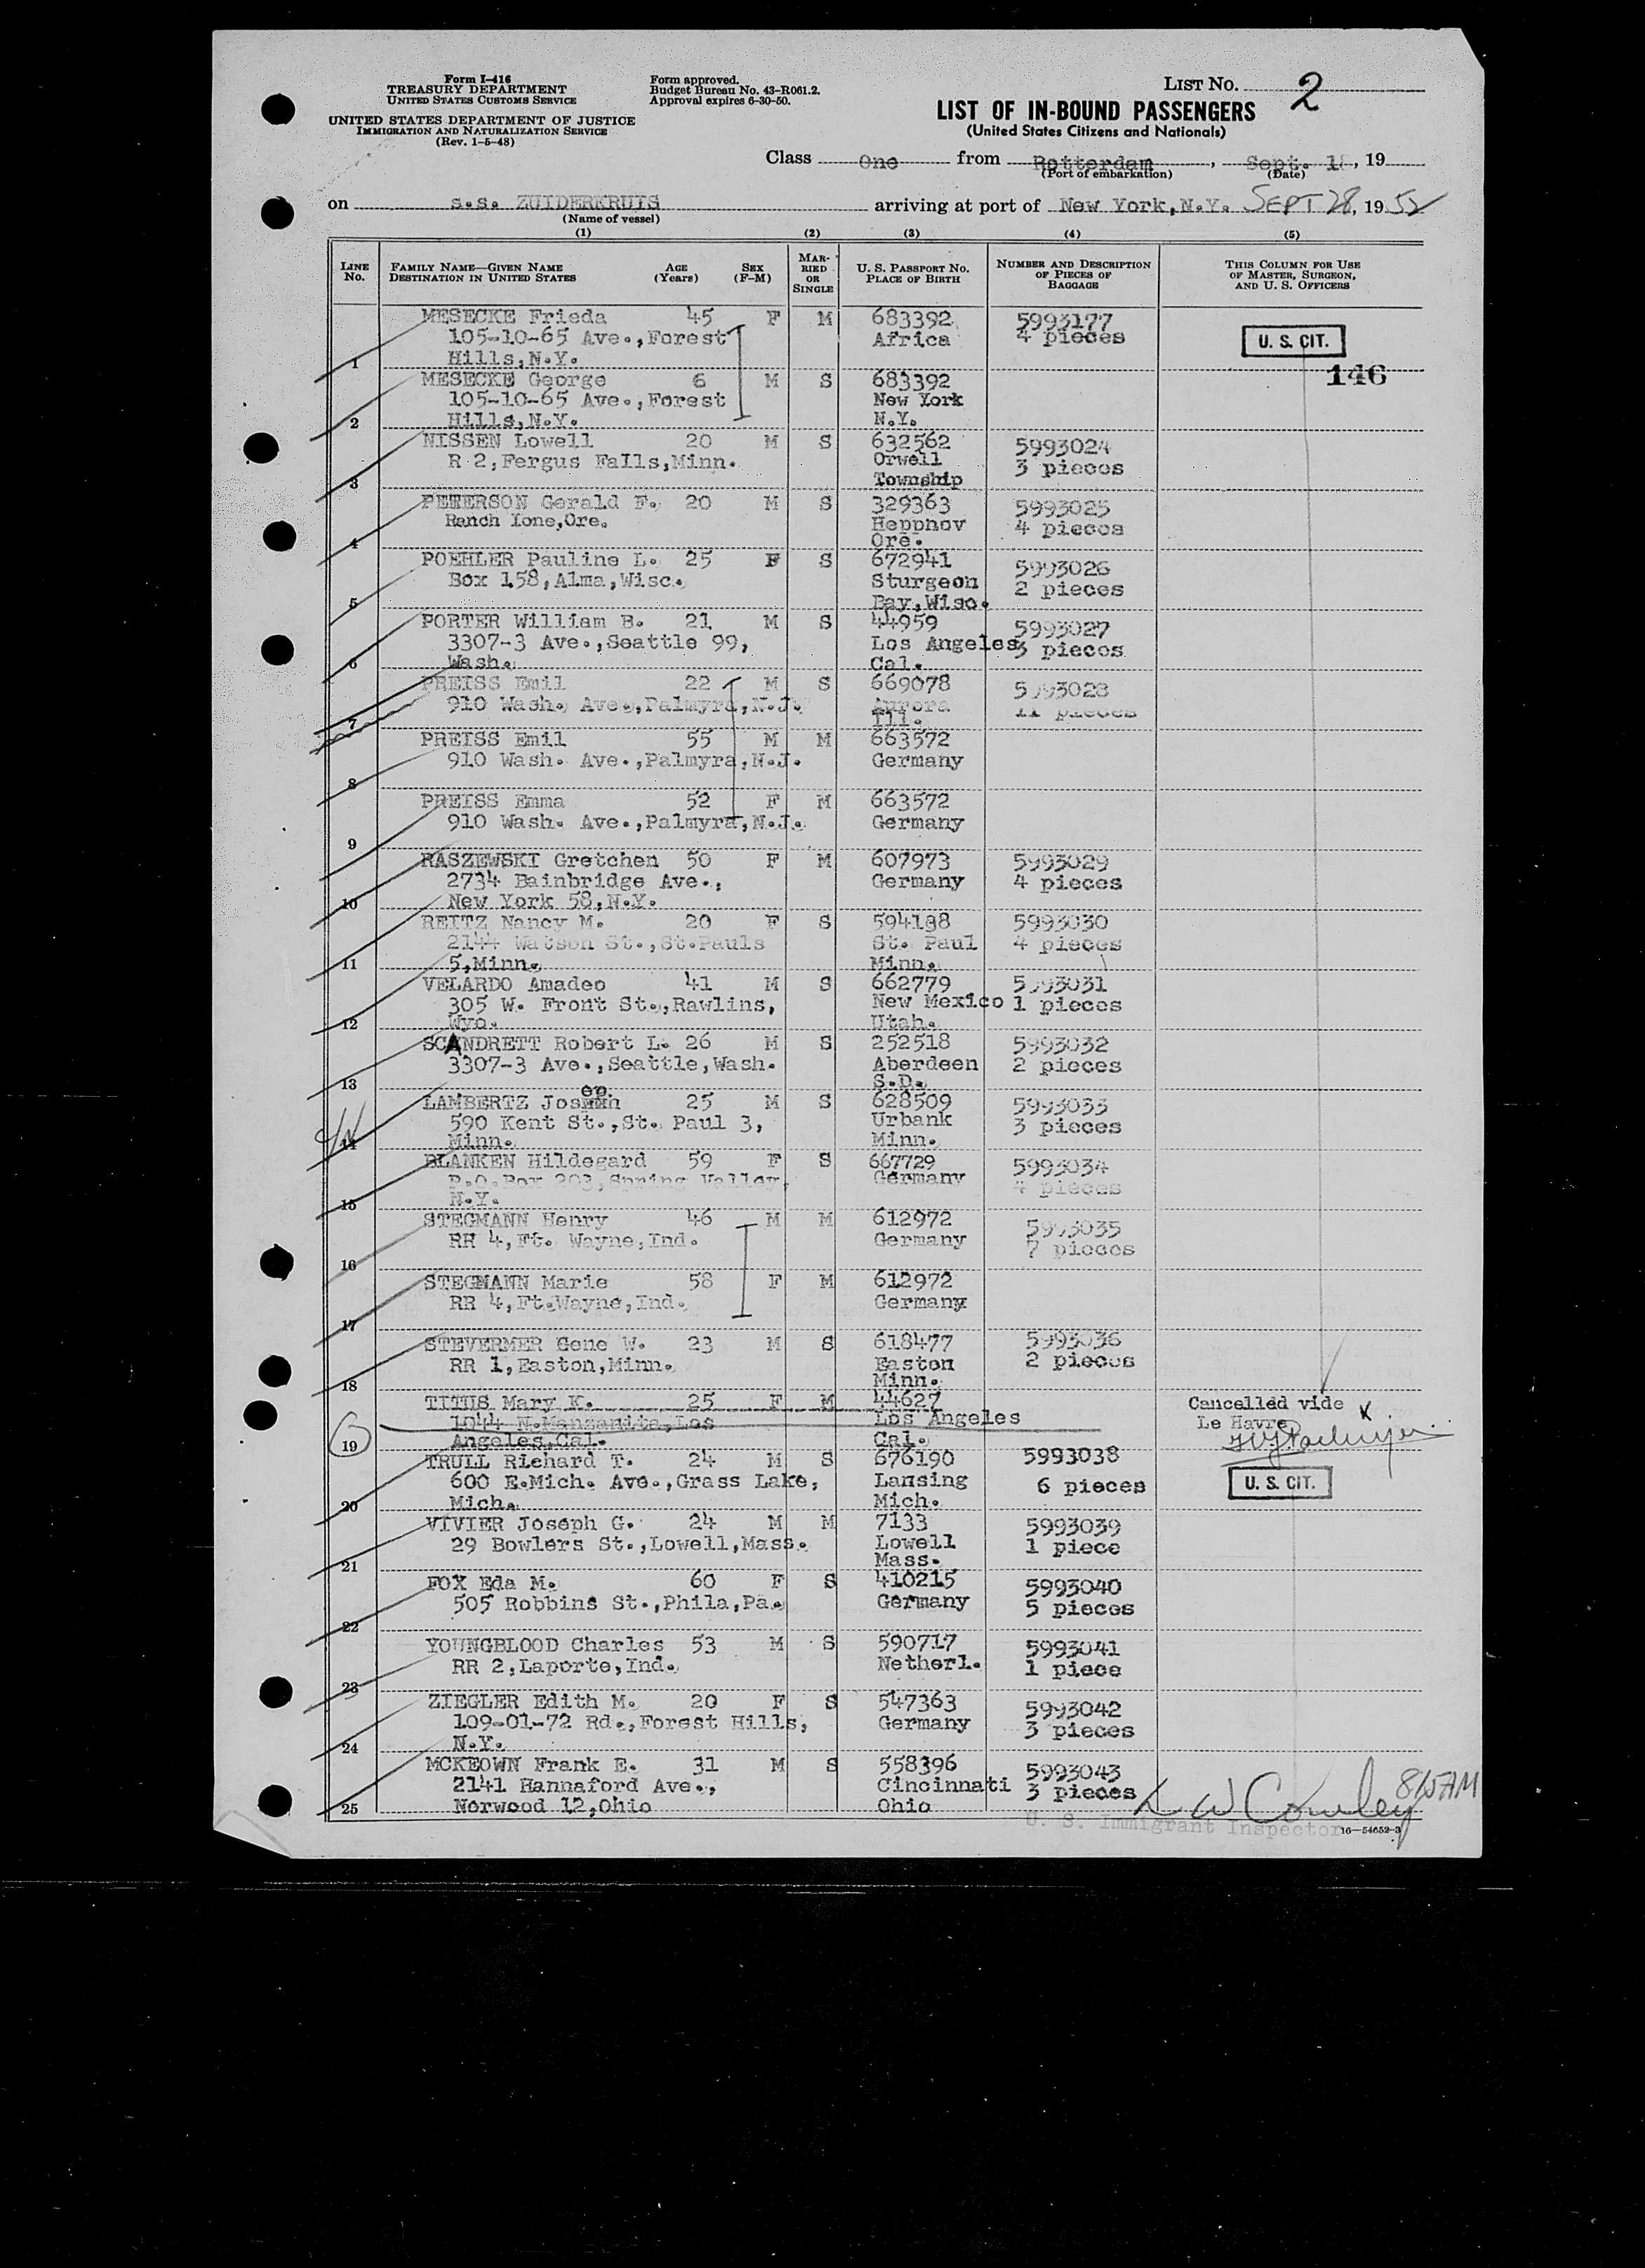 Form I-416
TREASURY DEPARTMENT
UNITED STATES CUSTOMS SERVICE
UNITED STATES DEPARTMENT OF JUSTICE
IMMIGRATION AND NATURALIZATION SERVICE
(Rev. 1-5-48)
Form approved.
Budget Bureau No. 43-R061.2.
Approval expires 6-30-50.
LIST NO. 2
LIST OF IN-BOUND PASSENGERS
(United States Citizens and Nationals)
Class One from Rotterdam, Sept. 18, 19
(Port of embarkation) (Date)
on s.s. ZUIDERKRUIS arriving at port of New York, N.Y. SEPT 28, 1952
(Name of vessel)
(1) (2) (3) (4) (5)
LINE NO. FAMILY NAME—GIVEN NAME DESTINATION IN UNITED STATES AGE (Years) SEX (F-M) MARRIED OR SINGLE U. S. PASSPORT NO. PLACE OF BIRTH NUMBER AND DESCRIPTION OF PIECES OF BAGGAGE THIS COLUMN FOR USE OF MASTER, SURGEON, AND U. S. OFFICERS
MESECKE Frieda 45 F M 683392 5993177
105-10-65 Ave., Forest Africa 4 pieces U. S. CIT.
1 Hills, N.Y. 146
MESECKE George 6 M S 683392
105-10-65 Ave., Forest New York
2 Hills, N.Y. N.Y.
NISSEN Lowell 20 M S 632562 5993024
R 2, Fergus Falls, Minn. Orwell 3 pieces
3 Township
PETERSON Gerald F. 20 M S 329363 5993025
Ranch Ione, Ore. Heppnov 4 pieces
4 Ore.
POEHLER Pauline L. 25 F S 672941 5993026
Box 158, Alma, Wisc. Sturgeon 2 pieces
5 Bay, Wisc.
PORTER William B. 21 M S 44959 5993027
3307-3 Ave., Seattle 99, Los Angeles 3 pieces
6 Wash. Cal.
PREISS Emil 22 M S 669078 5993028
910 Wash. Ave., Palmyra, N.J. Aurora 11 pieces
7 Ill.
PREISS Emil 55 M M 663572
910 Wash. Ave., Palmyra, N.J. Germany
8
PREISS Emma 52 F M 663572
910 Wash. Ave., Palmyra, N.J. Germany
9
RASZEWSKI Gretchen 50 F M 607973 5993029
2734 Bainbridge Ave., Germany 4 pieces
10 New York 58, N.Y.
REITZ Nancy M. 20 F S 594188 5993030
2144 Watson St., St.Pauls St. Paul 4 pieces
11 5, Minn. Minn.
VELARDO Amadeo 41 M S 662779 5993031
305 W. Front St., Rawlins, New Mexico 1 pieces
12 Wyo. Utah.
SCANDRETT Robert L. 26 M S 252518 5993032
3307-3 Ave., Seattle, Wash. Aberdeen 2 pieces
13 S.D.
LAMBERTZ Joseph 25 M S 628509 5993033
590 Kent St., St. Paul 3, Urbank 3 pieces
14 Minn. Minn.
BLANKEN Hildegard 59 F S 667729 5993034
P.O.Box 203, Spring Valley, Germany 4 pieces
15 N.Y.
STEGMANN Henry 46 M M 612972 5993035
RR 4, Ft. Wayne, Ind. Germany 7 pieces
16
STEGMANN Marie 58 F M 612972
RR 4, Ft.Wayne, Ind. Germany
17
STEVERMER Gene W. 23 M S 618477 5993036
RR 1, Easton, Minn. Easton 2 pieces
18 Minn.
TITUS Mary K. 25 F M 44627 Cancelled vide
1044 N.Manzanita, Los Los Angeles Le Havre
19 Angeles, Cal. Cal.
TRULL Richard T. 24 M S 676190 5993038
600 E.Mich. Ave., Grass Lake, Lansing 6 pieces U. S. CIT.
20 Mich. Mich.
VIVIER Joseph G. 24 M M 7133 5993039
29 Bowlers St., Lowell, Mass. Lowell 1 piece
21 Mass.
FOX Eda M. 60 F S 410215 5993040
505 Robbins St., Phila, Pa. Germany 5 pieces
22
YOUNGBLOOD Charles 53 M S 590717 5993041
RR 2, Laporte, Ind. Netherl. 1 piece
23
ZIEGLER Edith M. 20 F S 547363 5993042
109-01-72 Rd., Forest Hills, Germany 3 pieces
24 N.Y.
MCKEOWN Frank E. 31 M S 558396 5993043
2141 Hannaford Ave., Cincinnati 3 pieces
25 Norwood 12, Ohio Ohio
U. S. Immigrant Inspector
16—54652-3